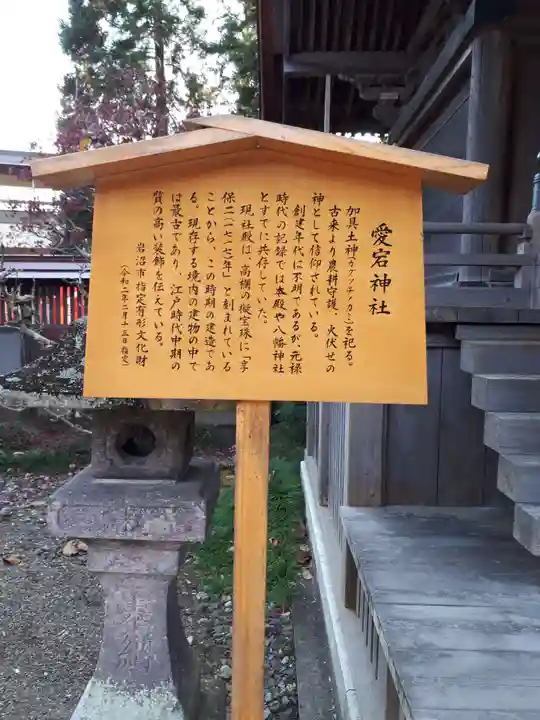 愛宕神社
加具土神(カグツチノカミ)を祀る。
古来より農耕守護、火伏せの
神として信仰されている。
創建年代は不明であるが、元禄
時代の記録では本殿や八幡神社
とすでに共存していた。
現社殿は、高欄の擬宝珠に「享
保二(一七一七年)」と刻まれている
ことから、この時期の建造であ
る。現存する境内の建物の中で
は最古であり、江戸時代中期の
質の高い装飾を伝えている。
岩沼市指定有形文化財
(令和二年二月十三日指定)
奉納